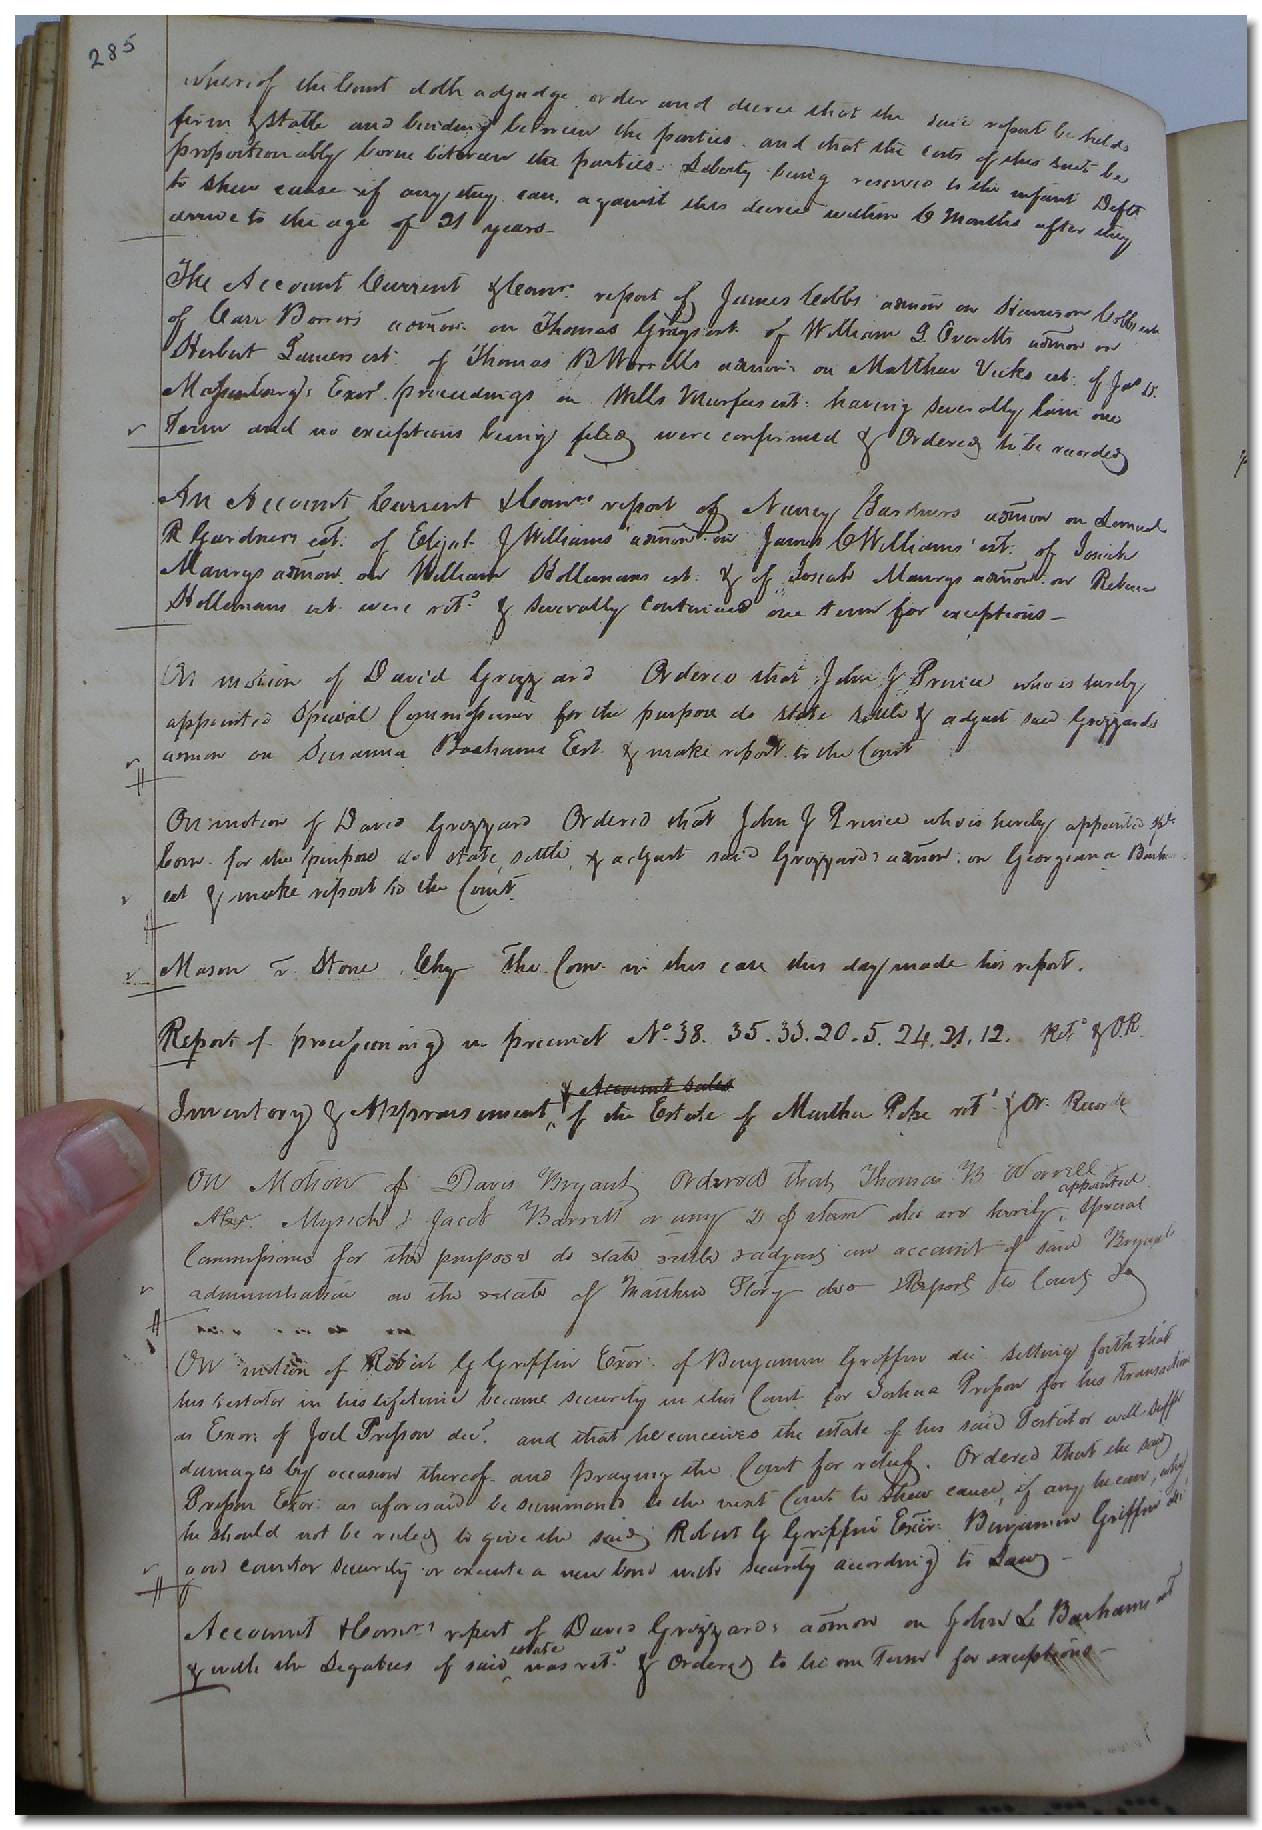 285
whereof the Court doth adjudge order and decree that the said report be held
firm & stable and binding between the parties and that the costs of this suit be
proportionably borne between the parties. Liberty being reserved to the infant Defts
to shew cause if any they can, against this decree within 6 Months after they
arrive to the age of 21 years.
The Account Current & Comrs report of James Cobbs admon on Harrison Cobbs est
of Carr Bowers admon on Thomas Grays est. of William Overetts admon on
Herbert est. of Thomas B Worrells admon on Matthew Vicks est. of Jas D.
Massenburgs Exor. proceedings on Wills Murfees est. having severally lain one
Term and no exceptions being filed were confirmed & Ordered to be recorded
An Account Current & Comrs report of Nancy Gardners admon on Lemuel
R Gardners est. of Elijah J Williams admon on James C Williams' est. of Josiah
Maurys admon on William Hollemans est. & of Josiah Maurys admon on Rebecca
Hollemans est. were retd & severally continued one term for exceptions -
On motion of David Grizzard Ordered that John J Prince who is hereby
appointed Special Commissioner for the purpose do state settle & adjust said Grizzards
admon on Susanna Barhams Est. & make report to the Court
On motion of David Grizzard Ordered that John J Prince who is hereby appointed
Com. for the purpose do state, settle, & adjust said Grizzards admon. on Georgeana
est & make report to the Court.
Mason v. Stone Chy The Com. in this case this day made his report.
Report of processioning in precinct No. 38. 35. 33. 20. 5. 24. 21. 12. Retd & OR
& Account Sales
Inventory & Appraisement of the Estate of Martha Pope retd & Or. Record
On Motion of Davis Bryant Ordered that Thomas B Worrell
appointed
Alex. Myrick & Jacob Barrett or any 2 of them who are hereby Special
Commissioners for the purpose do state settle & adjust an account of said Bryants
administration on the estate of Matthew Story decd & Report to Court
On motion of Robert G Griffin Exor. of Benjamin Griffin dec. setting forth that
his testator in his lifetime became security in this Court for Joshua Presson for his transaction
as Exor. of Joel Presson decd. and that he conceives the estate of his said Testator will suffer
damages by occasion thereof and praying the Court for relief. Ordered that the said
Presson Exor. as aforesaid be summoned to the next Court to shew cause, if any he can, why
he should not be ruled to give the said Robert G Griffin Exor. Benjamin Griffin dec
good counter security or execute a new bond with security according to Law -
Account & Comrs report of David Grizzards admon on John L Barhams est
estate
& with the Legatees of said was retd. & Ordered to lie one Term for exceptions -